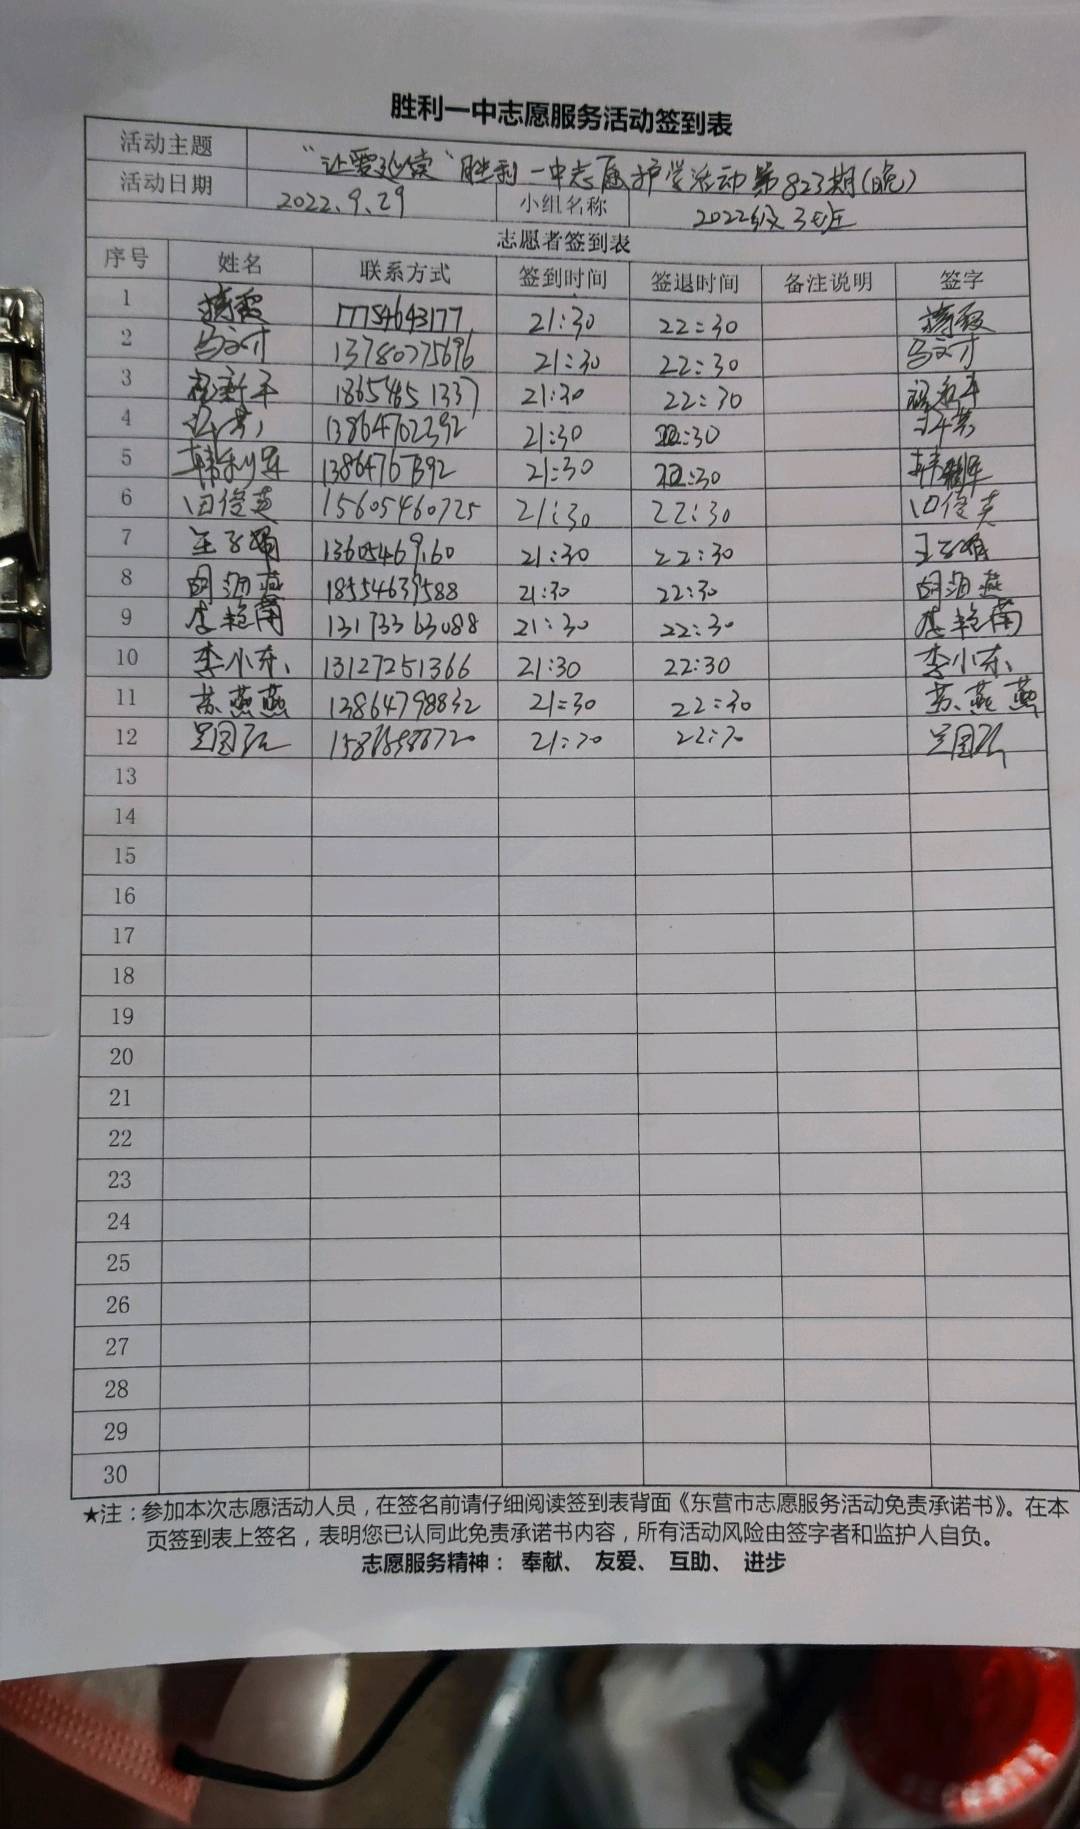 胜利一中志愿服务活动签到表
活动主题 "让爱延续"胜利一中志愿护学活动第823期(晚)
活动日期 2022.9.29 小组名称 2022级3班
志愿者签到表
序号 姓名 联系方式 签到时间 签退时间 备注说明 签字
1 17754643177 21:30 22:30
2 马文才 13780775696 21:30 22:30 马文才
3 18654651337 21:30 22:30
4 13864702392 21:30 22:30
5 21:30 22:30
6 田俊英 15605460725 21:30 22:30 田俊英
7 21:30 22:30
8 胡海燕 18554639588 21:30 22:30 胡海燕
9 李艳菊 13173363088 21:30 22:30 李艳菊
10 李小东 13127251366 21:30 22:30 李小东
11 苏燕燕 13864798832 21:30 22:30 苏燕燕
12 21:30 22:30
13
14
15
16
17
18
19
20
21
22
23
24
25
26
27
28
29
30
★注：参加本次志愿活动人员，在签名前请仔细阅读签到表背面《东营市志愿服务活动免责承诺书》。在本
页签到表上签名，表明您已认同此免责承诺书内容，所有活动风险由签字者和监护人自负。
志愿服务精神： 奉献、 友爱、 互助、 进步